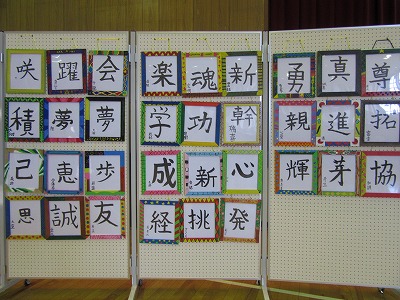 咲 躍 会
積 夢 夢
己 恵 歩
思 誠 友
楽 魂 新
学 功 幹
成 新 心
経 挑 発
勇 真 尊
親 進 拓
輝 芽 協